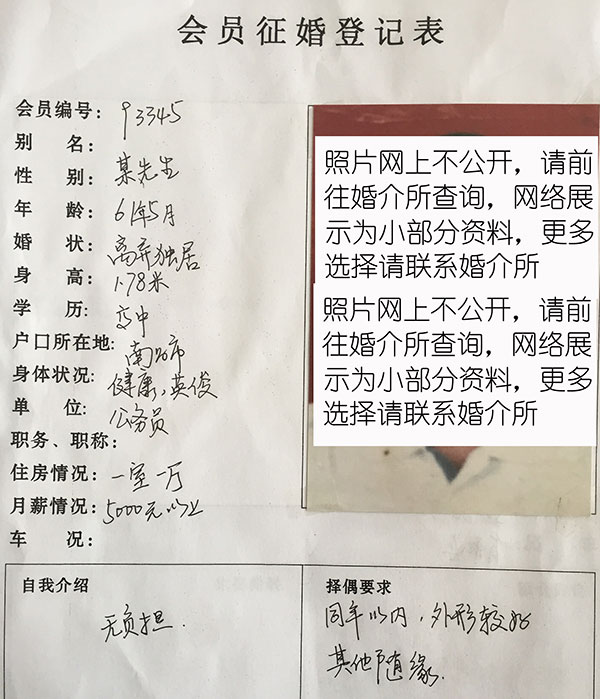 会员征婚登记表
会员编号: 93345
别 名:
性 别: 某先生
年 龄: 61年5月
婚 状: 离异独居
身 高: 1.78米
学 历: 高中
户口所在地: 南昌市
身体状况: 健康,英俊
单 位: 公务员
职务、职称:
住房情况: 一室一厅
月薪情况: 5000元以上
车 况:
照片网上不公开，请前
往婚介所查询，网络展
示为小部分资料，更多
选择请联系婚介所
照片网上不公开，请前
往婚介所查询，网络展
示为小部分资料，更多
选择请联系婚介所
自我介绍
无负担.
择偶要求
同年以内，外形较好
其他随缘.